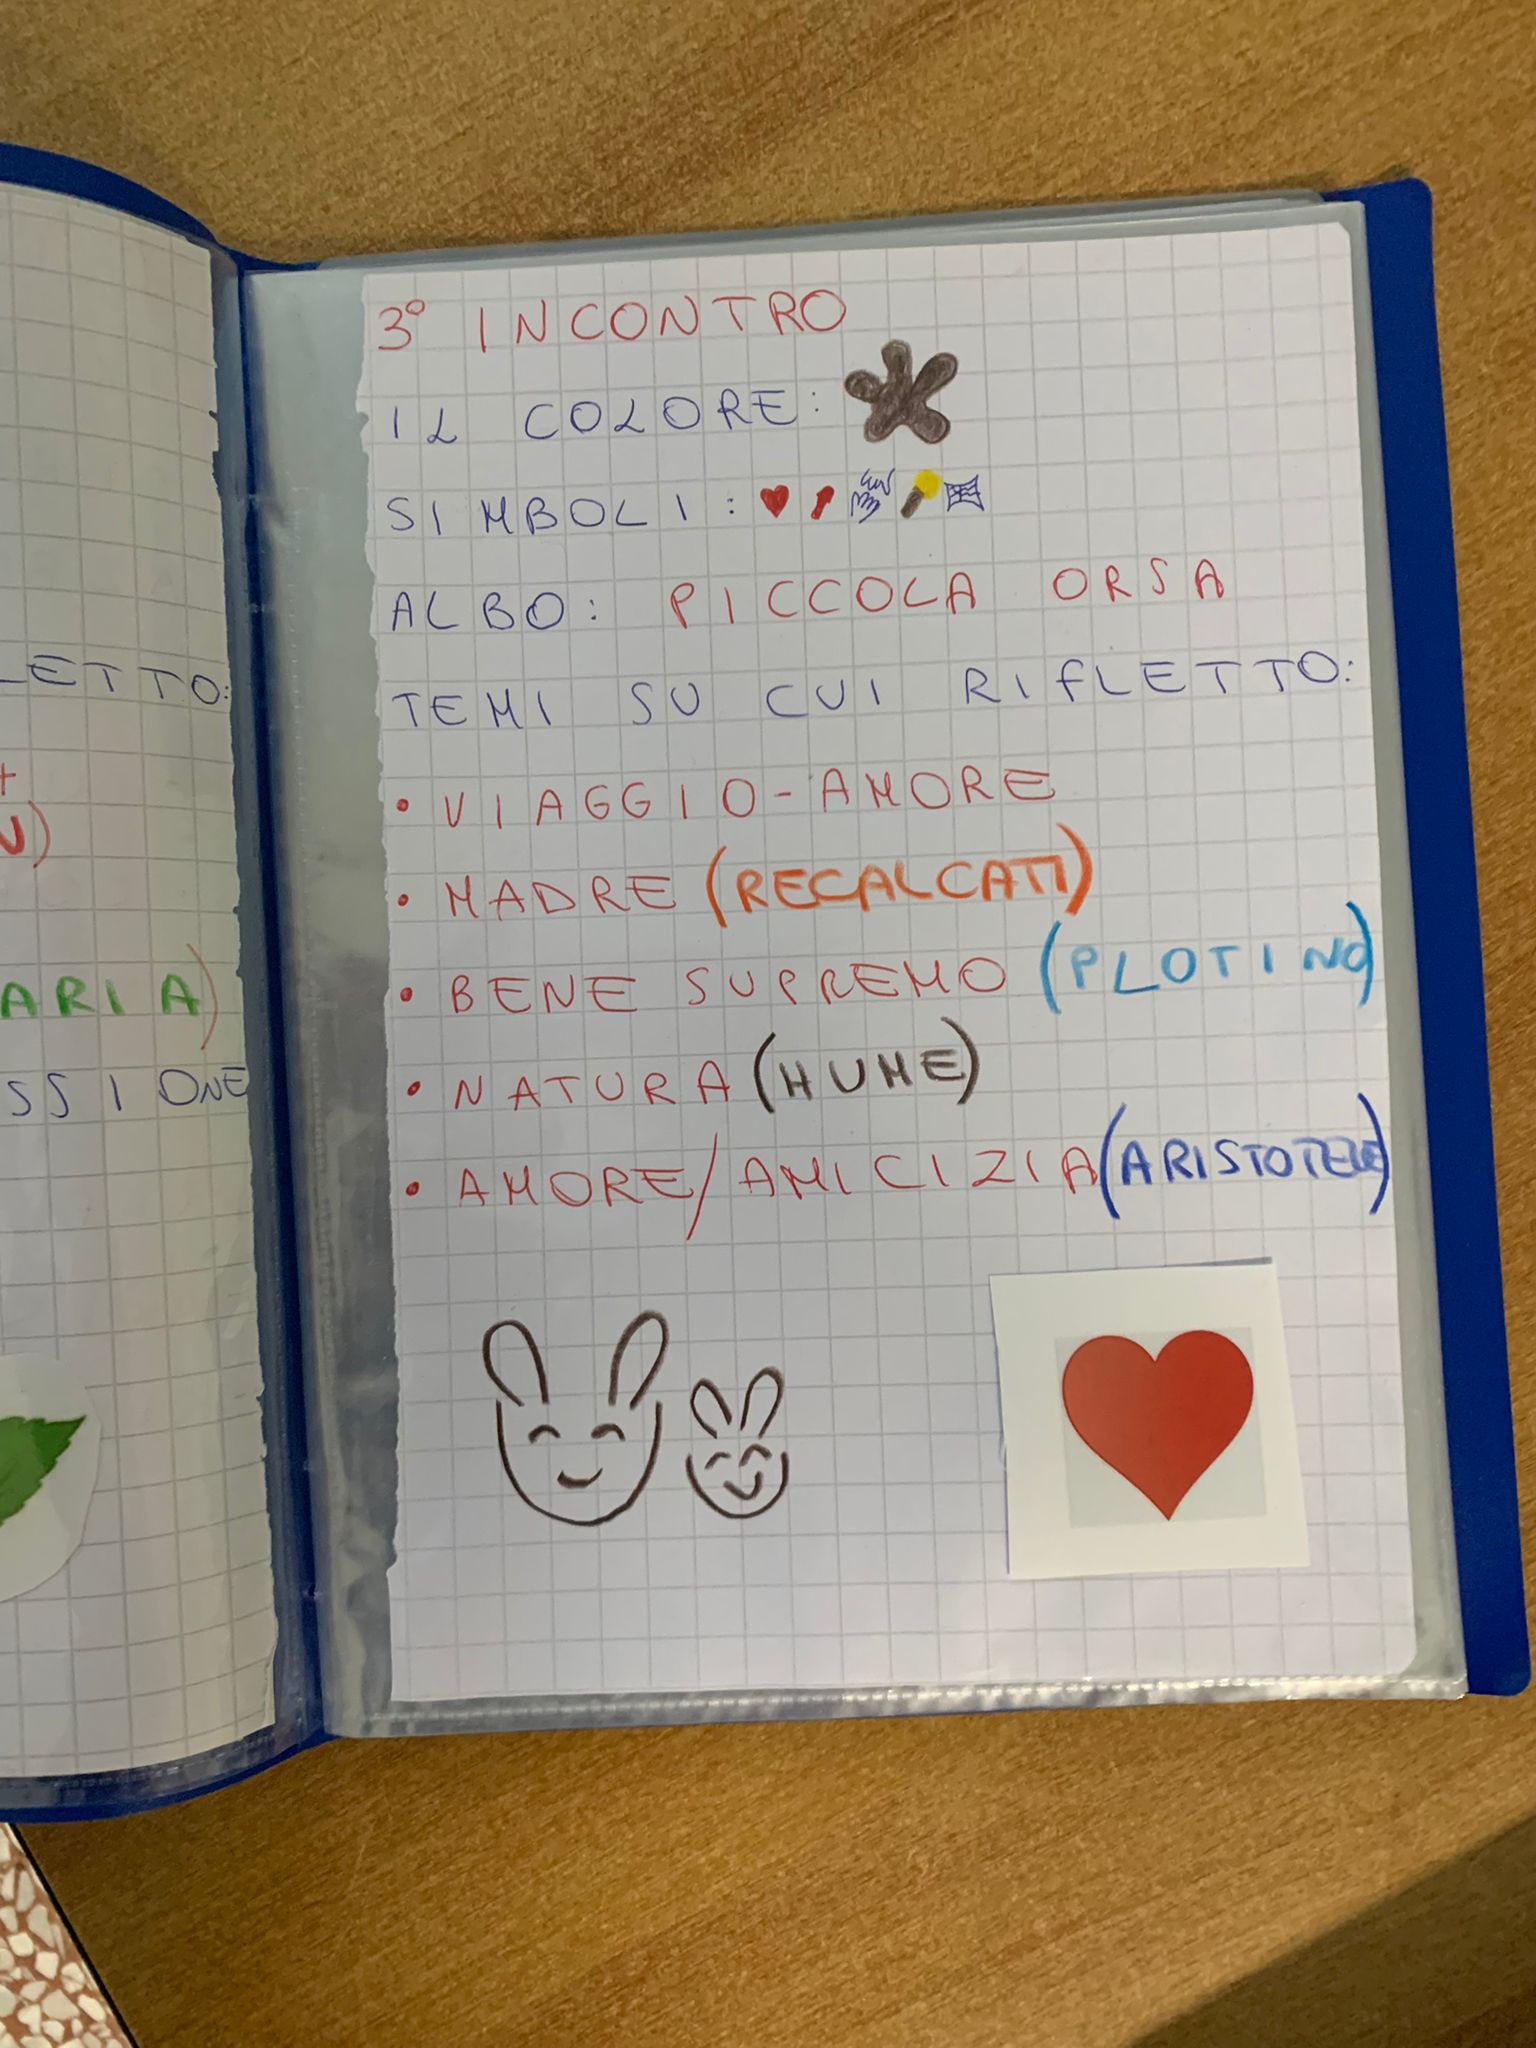 LETTO:
+
U)
ARIA)
SSIONE
3° INCONTRO
IL COLORE:
SIMBOLI:
ALBO: PICCOLA ORSA
TEMI SU CUI RIFLETTO:
• VIAGGIO-AMORE
• MADRE (RECALCATI)
• BENE SUPREMO (PLOTINO)
• NATURA (HUME)
• AMORE/AMICIZIA (ARISTOTELE)